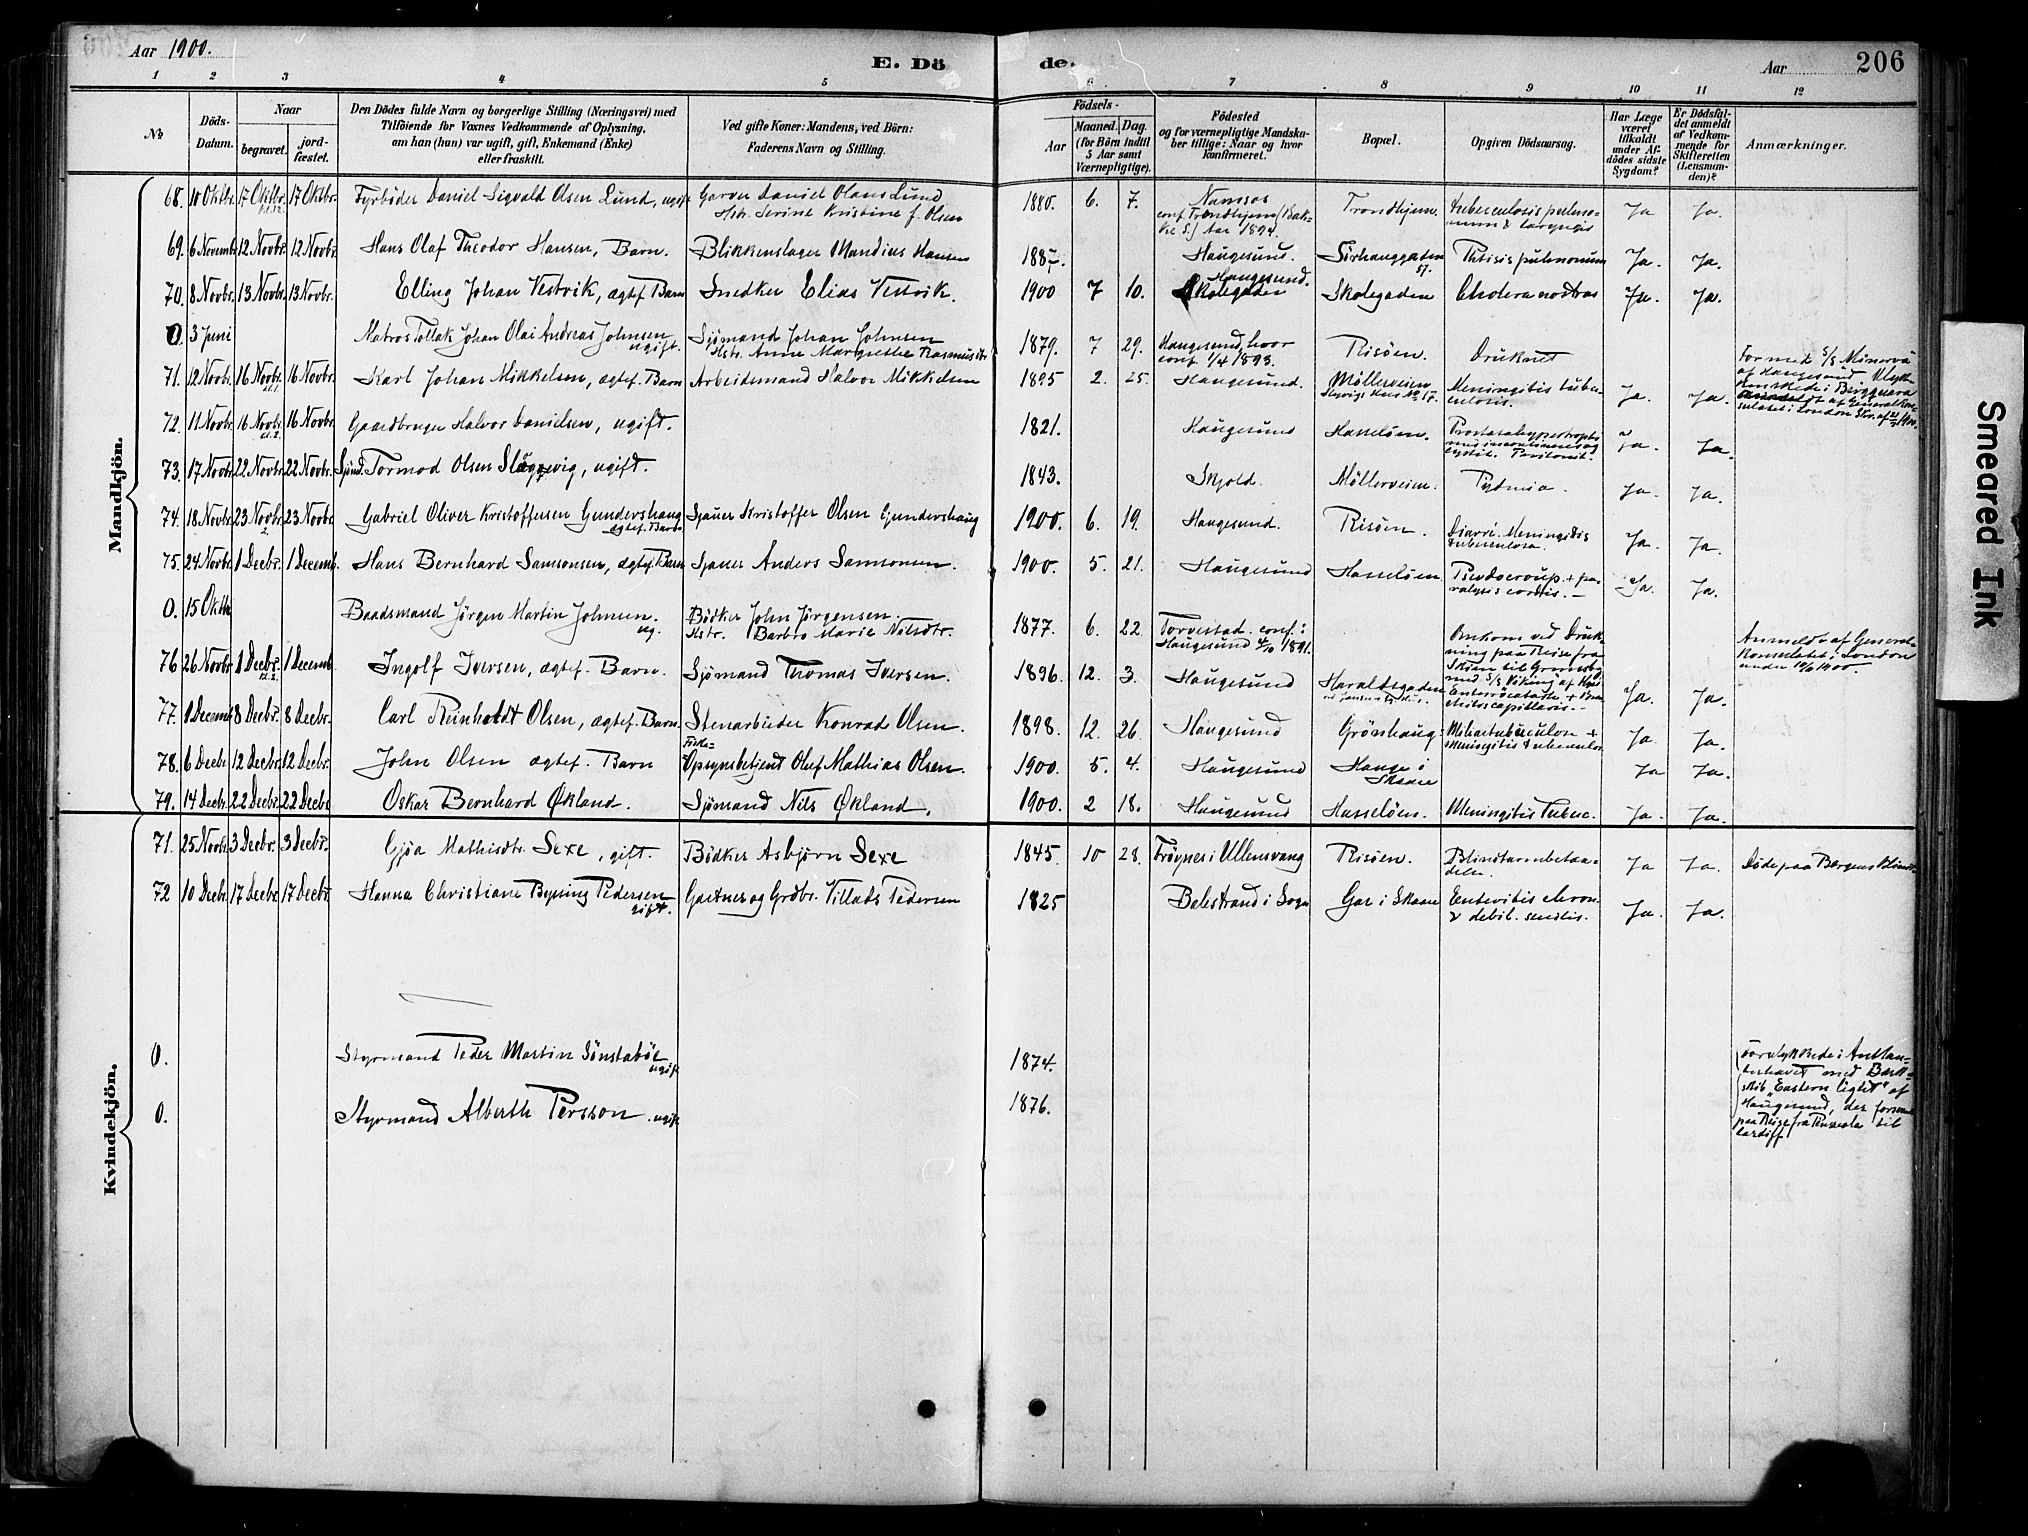 Aar 1900.
E. Dö
de.
Aar
206
1 2 3 4 5 6 7 8 9 10 11 12
No
Döds-
Datum.
Naar
begravet.
jord-
fæstet.
Den Dödes fulde Navn og borgerlige Stilling (Næringsvei) med
Tilföiende for Voxnes Vedkommende af Oplysning,
om han (hun) var ugift, gift, Enkemand (Enke)
eller fraskilt.
Ved gifte Koner: Mandens, ved Börn:
Faderens Navn og Stilling.
Födsels-
Aar
Maaned. Dag.
(for Börn indtil
5 Aar samt
Værnepligtige).
Födested
og for værnepligtige Mandska-
ber tillige: Naar og hvor
konfirmeret.
Bopæl.
Opgiven Dödsaarsag.
Har Læge
været
tilkaldt
under Af-
dödes sidste
Sygdom?
Er Dödsfal-
det anmeldt
af Vedkom-
mende for
Skifteretten
(Lensman-
den)?
Anmærkninger.
Mandkjön.
68. 10 Oktbr. 17 Oktbr. 17 Oktbr. Fyrböder Daniel Sigvald Olsen Lund, ugift Garver Daniel Olaus Lund
Hstr. Serine Kristine f. Olsen 1880. 6. 7. Namsos
conf. Trondhjem (Bak-
ke S.) Aar 1894. Trondhjem. tuberculosis pulmo-
num & laryngis Ja Ja.
69. 6 Novembr 12 Novbr. 12 Novbr. Hans Olaf Theodor Hansen, Barn. Blikkenslager Mandius Hansen 1887 Haugesund. Sörhauggaden
57. Phtisis pulmonum Ja. Ja.
70. 8 Novbr. 13 Novbr. 13 Novbr. Elling Johan Vestvik, ægtef. Barn Snedker Elias Vestvik. 1900 7 10. Haugesund.
Skolegaden Skolegaden Cholera nostras Ja. Ja.
0. 3 Juni Matros Tollak Johan Olai Andreas Johnsen
ugift. Sjömand Johan Johnsen
Hstr. Anne Margrethe Rasmusdtr 1879. 7 29. Haugesund, hvor
conf. 1/4 1893. Risöen. Druknet
71. 12 Novbr. 16 Novbr. 16 Novbr. Karl Johan Mikkelsen, ægtef. Barn Arbeidsmand Halvor Mikkelsen 1895 2. 25. Haugesund. Möllerveien Meningitis tuber-
culosis. Ja. Ja.
For med S/S Minerva
af Haugesund
af Generalkon-
sulatet i London
72. 11 Novbr. 16 Novbr. 16 Novbr. Gaardbruger Halvor Danielsen, ugift. 1821. Haugesund Hasselöen. Prostatahypertrophi
med incontinens og
cystit. Peritonit. Ja. Ja.
73. 17 Novbr. 22 Novbr. 22 Novbr. Sjömd. Tormod Olsen Slåggevig, ugift. 1843. Skjold. Möllerveien. Pyæmia. Ja. Ja.
74. 18 Novbr. 23 Novbr. 23 Novbr. Gabriel Oliver Kristoffersen Gundershaug
ægtef. Barn Sjauer Kristoffer Olsen Gundershaug 1900. 6. 19. Haugesund. Risöen. Diarré. Meningitis
tuberculosa. Ja. Ja.
75. 24 Novbr. 1 Decbr. 1 Decemb. Hans Bernhard Samsonsen, ægtef. Barn Sjauer Anders Samsonsen. 1900. 5. 21. Haugesund Hasselöen Pseudocroup. + pa-
ralysis cordis. Ja. Ja.
0. 15 Oktbr Baadsmand Jörgen Martin Johnsen.
ug. Bödker John Jörgensen.
Hstr. Barbro Marie Nilsdtr. 1877. 6. 22. Torvestad. conf. i
Haugesund 4/10 1891. Omkom ved Druk-
ning paa Reise fra
Skien til Grimsby
med S/S "Viking" af Anmeldt af General-
Konsulatet i London
76. 26 Novbr. 1 Decbr. 1 Decemb Ingolf Iversen, ægtef. Barn. Sjömand Thomas Iversen. 1896. 12. 3. Haugesund Haraldsgaden Ja. Ja.
77. 1 Decemb 8 Decbr. 8 Decbr. Carl Reinholdt Olsen, ægtef. Barn. Stenarbeider Konrad Olsen. 1898. 12. 26. Haugesund Grönhaug. Miliærtuberculose +
meningitis tuberculos Ja. Ja.
78. 6 Decbr. 12 Decbr. 12 Decbr. John Olsen ægtef. Barn Fiske-
Opsynsbetjent Oluf Mathias Olsen. 1900. 5. 4. Haugesund Hauge i
Skaare Ja Ja.
79. 14 Decbr. 22 Decbr. 22 Decbr Oskar Bernhard Økland. Sjömand Nils Økland. 1900. 2 18. Haugesund Hasselöen. Meningitis Tuberc. Ja. Ja.
Kvindekjön.
71. 25 Novbr. 3 Decbr. 3 Decbr. Gjöa Mathisdtr. Sexe, gift. Bödker Asbjörn Sexe 1845. 10 28. Fröynes i Ullensvang Risöen. Blindtarmbetæn-
delse. Ja Ja. Döde paa Bergens
72 10 Decbr. 17 Decbr. 17 Decbr. Hanna Christiane Bysning Pedersen
gift. Gartner og Grdbr. Villads Pedersen 1825 Balestrand i Sogn Gar i Skaare Enteritis chron.
& debil. senilis. Ja. Ja.
0. Styrmand Peder Martin Sönstaböe
ugift 1874.
0. Styrmand Alberth Persson. ugift 1876.
Forulykkede i Atlan-
terhavet med Bark-
skib "Eastern Light" af
Haugesund, der forsvandt
paa Reise fra Pensacola til
Cardiff
Smeared Ink